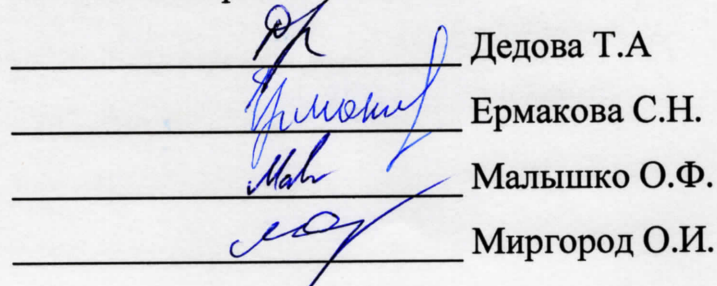 Дедова Т.А
Ермакова С.Н.
Малышко О.Ф.
Миргород О.И.